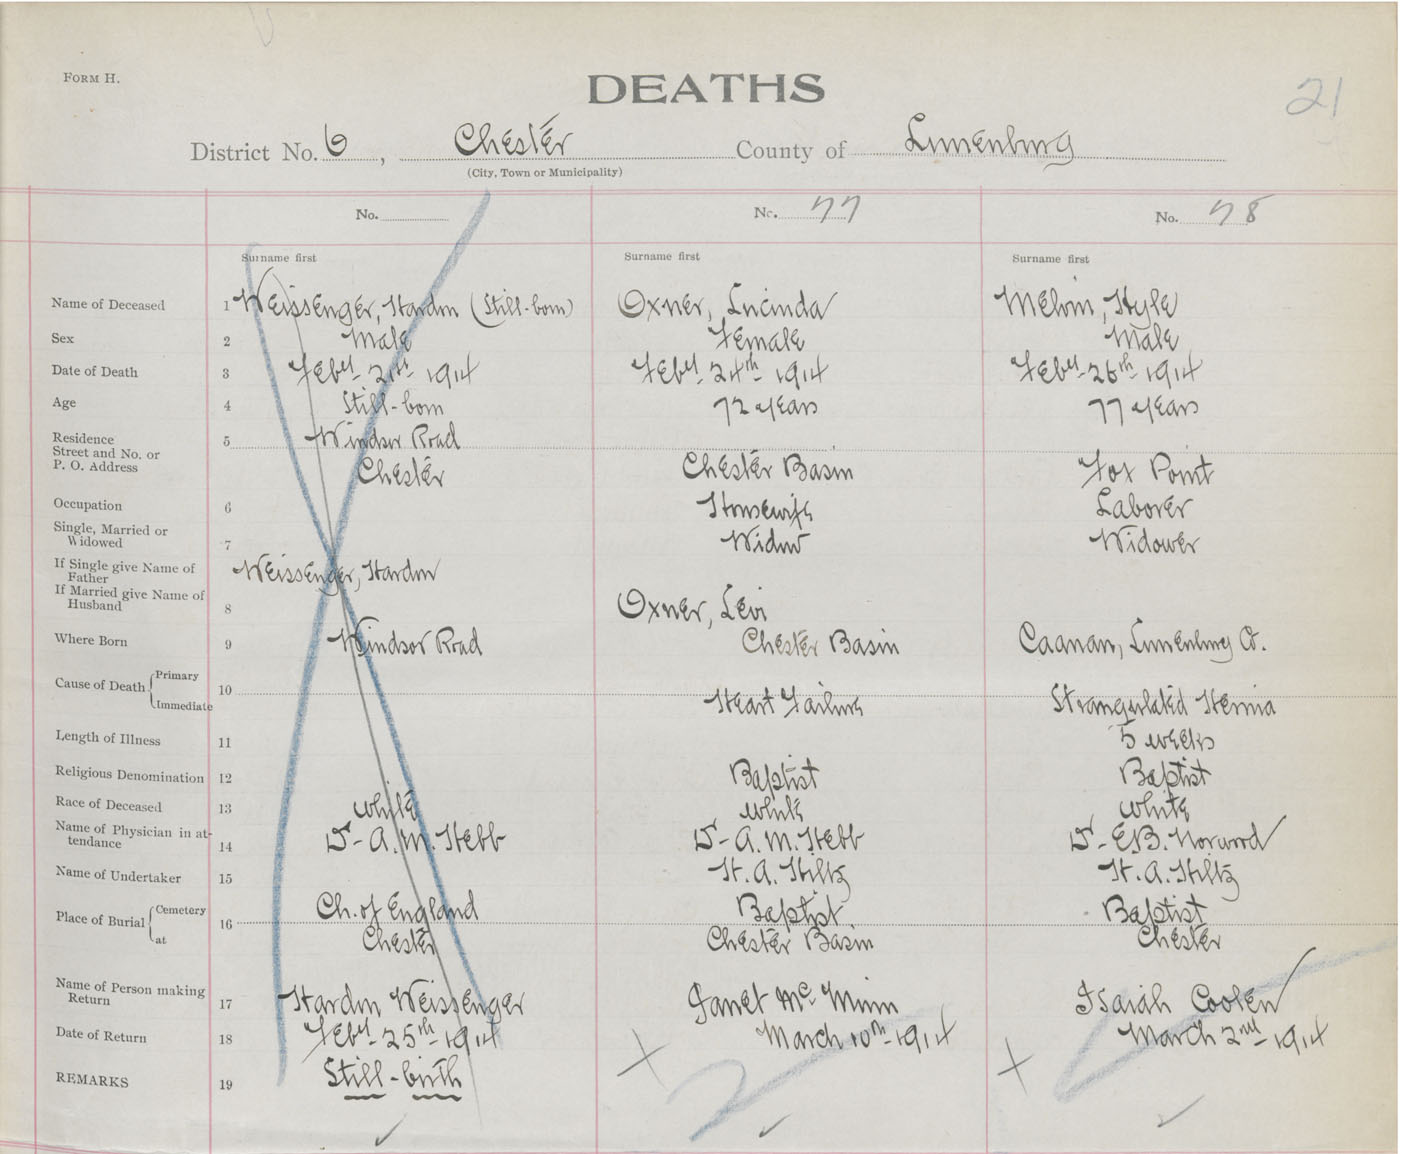 FORM H.
DEATHS
21
District No. 6, Chester County of Lunenburg
(City, Town or Municipality)
No. No. 77 No. 78
Surname first Surname first Surname first
Name of Deceased 1 Weissenger, Hardin (Still-born) Oxner, Lucinda Melvin, Hyle
Sex 2 Male Female Male
Date of Death 3 Feby- 21st- 1914 Feby- 24th- 1914 Feby- 26th- 1914
Age 4 Still-born 72 years 77 years
Residence
Street and No. or
P. O. Address
5 Windsor Road
Chester Chester Basin Fox Point
Occupation 6 Housewife Laborer
Single, Married or
Widowed 7 Widow Widower
If Single give Name of
Father Weissenger, Hardin
If Married give Name of
Husband 8 Oxner, Levi
Where Born 9 Windsor Road Chester Basin Caanan, Lunenburg Co.
Cause of Death { Primary
Immediate 10 Heart Failure Strangulated Hernia
Length of Illness 11 5 weeks
Religious Denomination 12 Baptist Baptist
Race of Deceased 13 white white white
Name of Physician in at-
tendance 14 Dr- A. M. Hebb Dr- A. M. Hebb Dr- E.B. Norwood
Name of Undertaker 15 H. A. Hiltz H. A. Hiltz
Place of Burial { Cemetery
at 16 Ch. of England Baptist Baptist
Chester Chester Basin Chester
Name of Person making
Return 17 Hardin Weissenger Janet Mc Minn Isaiah Coolen
Date of Return 18 Feby- 25th- 1914 March 10th- 1914 March 2nd- 1914
REMARKS 19 Still-birth